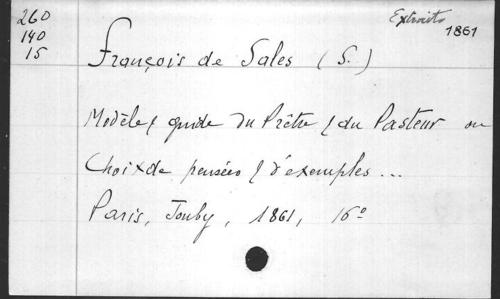 260
140
15
Extraits
1861
François de Sales (S.)
Modèle & guide du Prêtre & du Pasteur ou
Choix de pensées & d'exemples...
Paris, Jouby, 1861, 16º